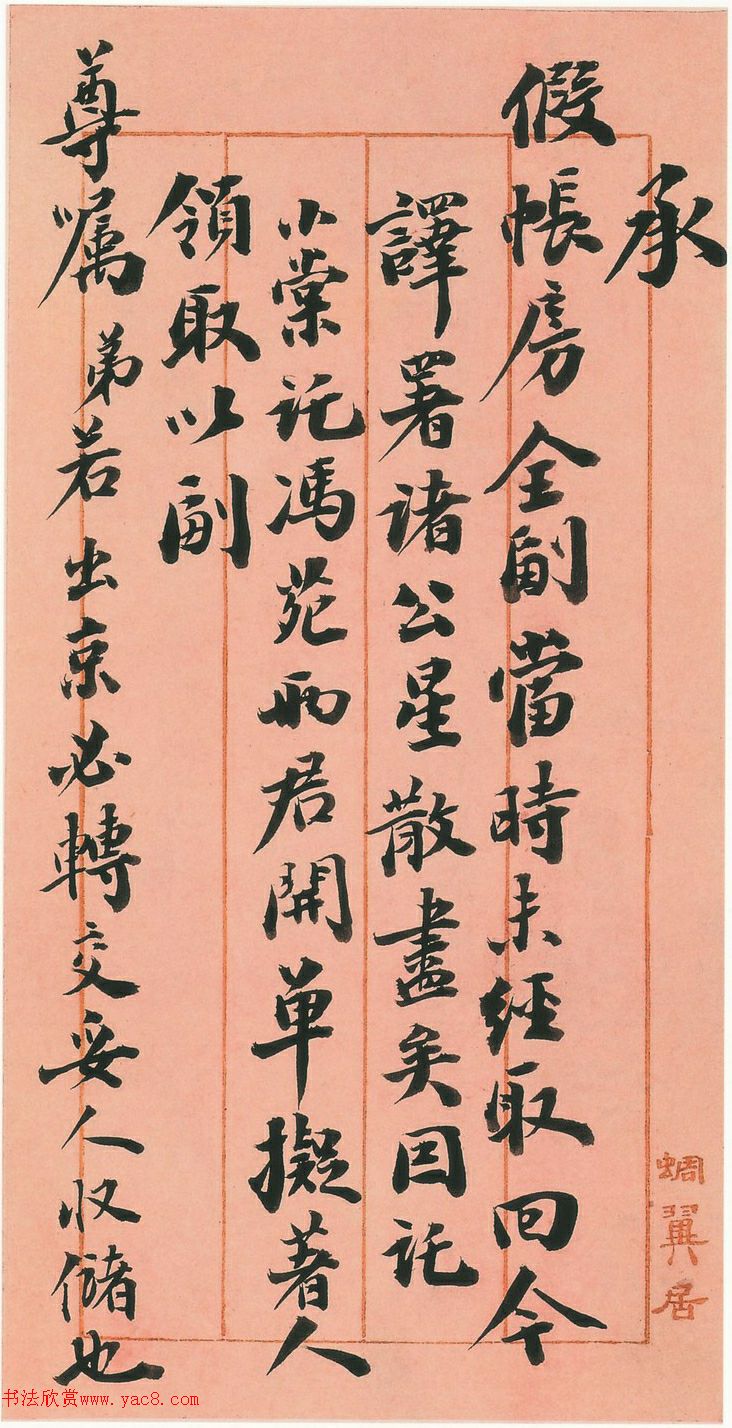 承
假帳房全副當時未經取回今
譯署諸公星散盡矣因託
小棠託馮苑兩君開單擬著人
領取以副
尊嘱弟若出京必轉交妥人收儲也
蜩翼居
书法欣赏www.yac8.com